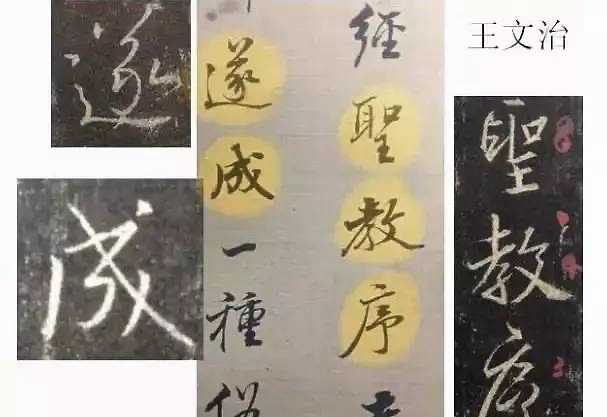 王文治
經聖教序
遂成一種俗
遂
成
聖教序